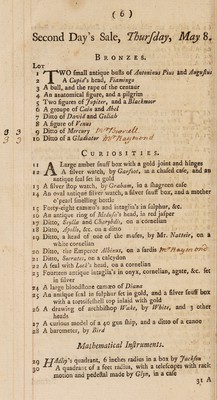 ( 6 )
Second Day's Sale, Thursday, May 8.
BRONZES.
LOT
1 TWO small antique busts of Antoninus Pius and Augustus
2 A Cupid's head, Fiamingo
3 A bull, and the rape of the centaur
4 An anatomical figure, and a pilgrim
5 Two figures of Jupiter, and a Blackmoor
6 A groupe of Cain and Abel
7 Ditto of David and Goliah
8 A figure of Venus
9 Ditto of Mercury
10 Ditto of a Gladiator Mr Raymond
CURIOSITIES.
11 Large amber snuff box with a gold joint and hinges
12 A silver watch, by Garfont, in a chased case, and an
antique seal set in gold
13 A silver stop watch, by Graham, in a shagreen case
14 An oval antique silver watch, a silver snuff box, and a mother
o'pearl smelling bottle
15 Forty-eight cameo's and intaglia's in sulphur, &c.
16 An antique ring of Medusa's head, in red jasper
17 Ditto, Scylla and Charybdis, on a cornelian
18 Ditto, Apollo, &c. on a ditto
19 Ditto, a head of one of the muses, by Mr. Natteir, on a
white cornelian
20 Ditto, the Emperor Albinus, on a sardis Mr Raymond
21 Ditto, Socrates, on a calcydon
22 A seal with Luck's head, on a cornelian
23 Fourteen antique intaglia's in onyx, cornelian, agate, &c. set
in silver
24 A large bloodstone cameo of Diana
25 An antique seal in sulphur set in gold, and a silver snuff box
with a tortoiseshell top inlaid with gold
26 A drawing of archbishop Wake, by White, and 3 other
heads
27 A curious model of a 40 gun ship, and a ditto of a canoe
28 A barometer, by Bird
Mathematical Instruments.
29 HAdley's quadrant, 6 inches radius in a box by Jackson
30 A quadrant of 2 feet radius, with a telescopes with rack
motion and pedestal made by Glyn, in a case
31 A